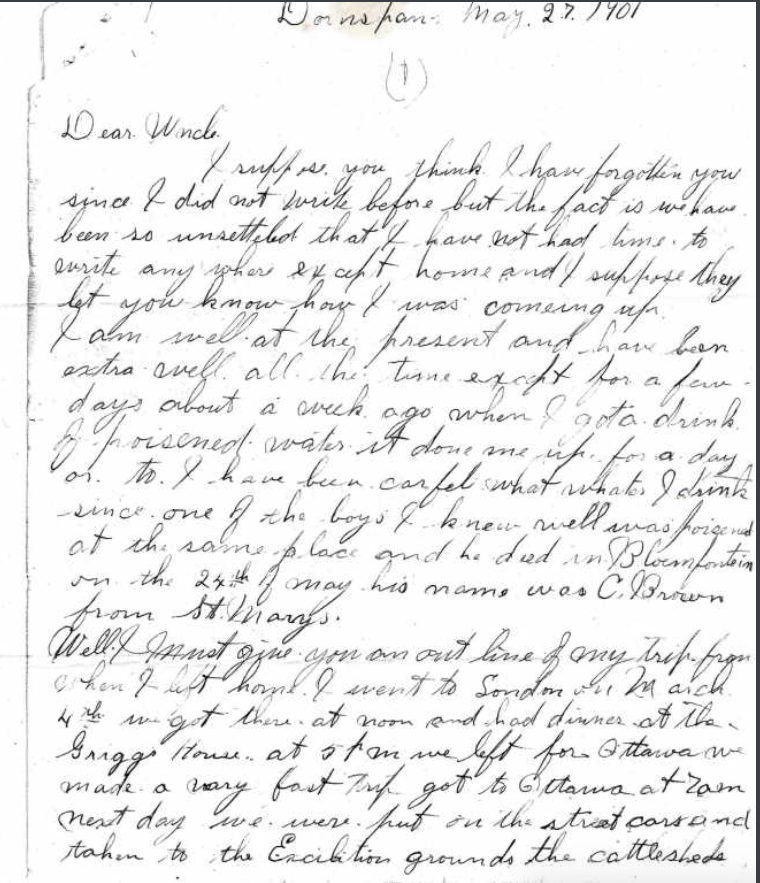 Dornspan May. 27. 1901
(1)
Dear. Uncle.
I suppose. you think. I have forgotten you
since I did not write before but the fact is we have
been so unsetteled that I have not had time. to
write any where except home and I suppose they
let you know how I was comeing up.
I am well at the present and have been
extra well. all. the. time except for a few
days about a week ago when I got a drink
of poisened water it done me up. for a day
or. to. I have been carfel what whater I drink
since. one of the boys I knew well was poisened
at the same place and he died in Bloemfontein
on the 24th of may his name was C. Brown
from St. Marys.
Well. I Must give you an out line of my trip from
when I left home. I went to London on March
4th we got there. at noon and had dinner at the
Griggs House.. at 5 P m we left for Ottawa we
made a vary fast Trip got to Ottawa at 7am
next day we. were. put on the street cars and
taken to the Excibition grounds the cattlesheds